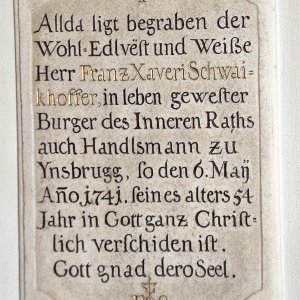 Allda ligt begraben der
Wohl-Edlvëst und Weiße
Herr Franz Xaveri Schwai-
khoffer, in leben gewester
Burger des Inneren Raths
auch Handlsmann zu
Ynsbrugg, so den 6. Maÿ
Año. 1741. seines alters 54
Jahr in Gott ganz Christ-
lich verschiden ist.
Gott gnad dero Seel.